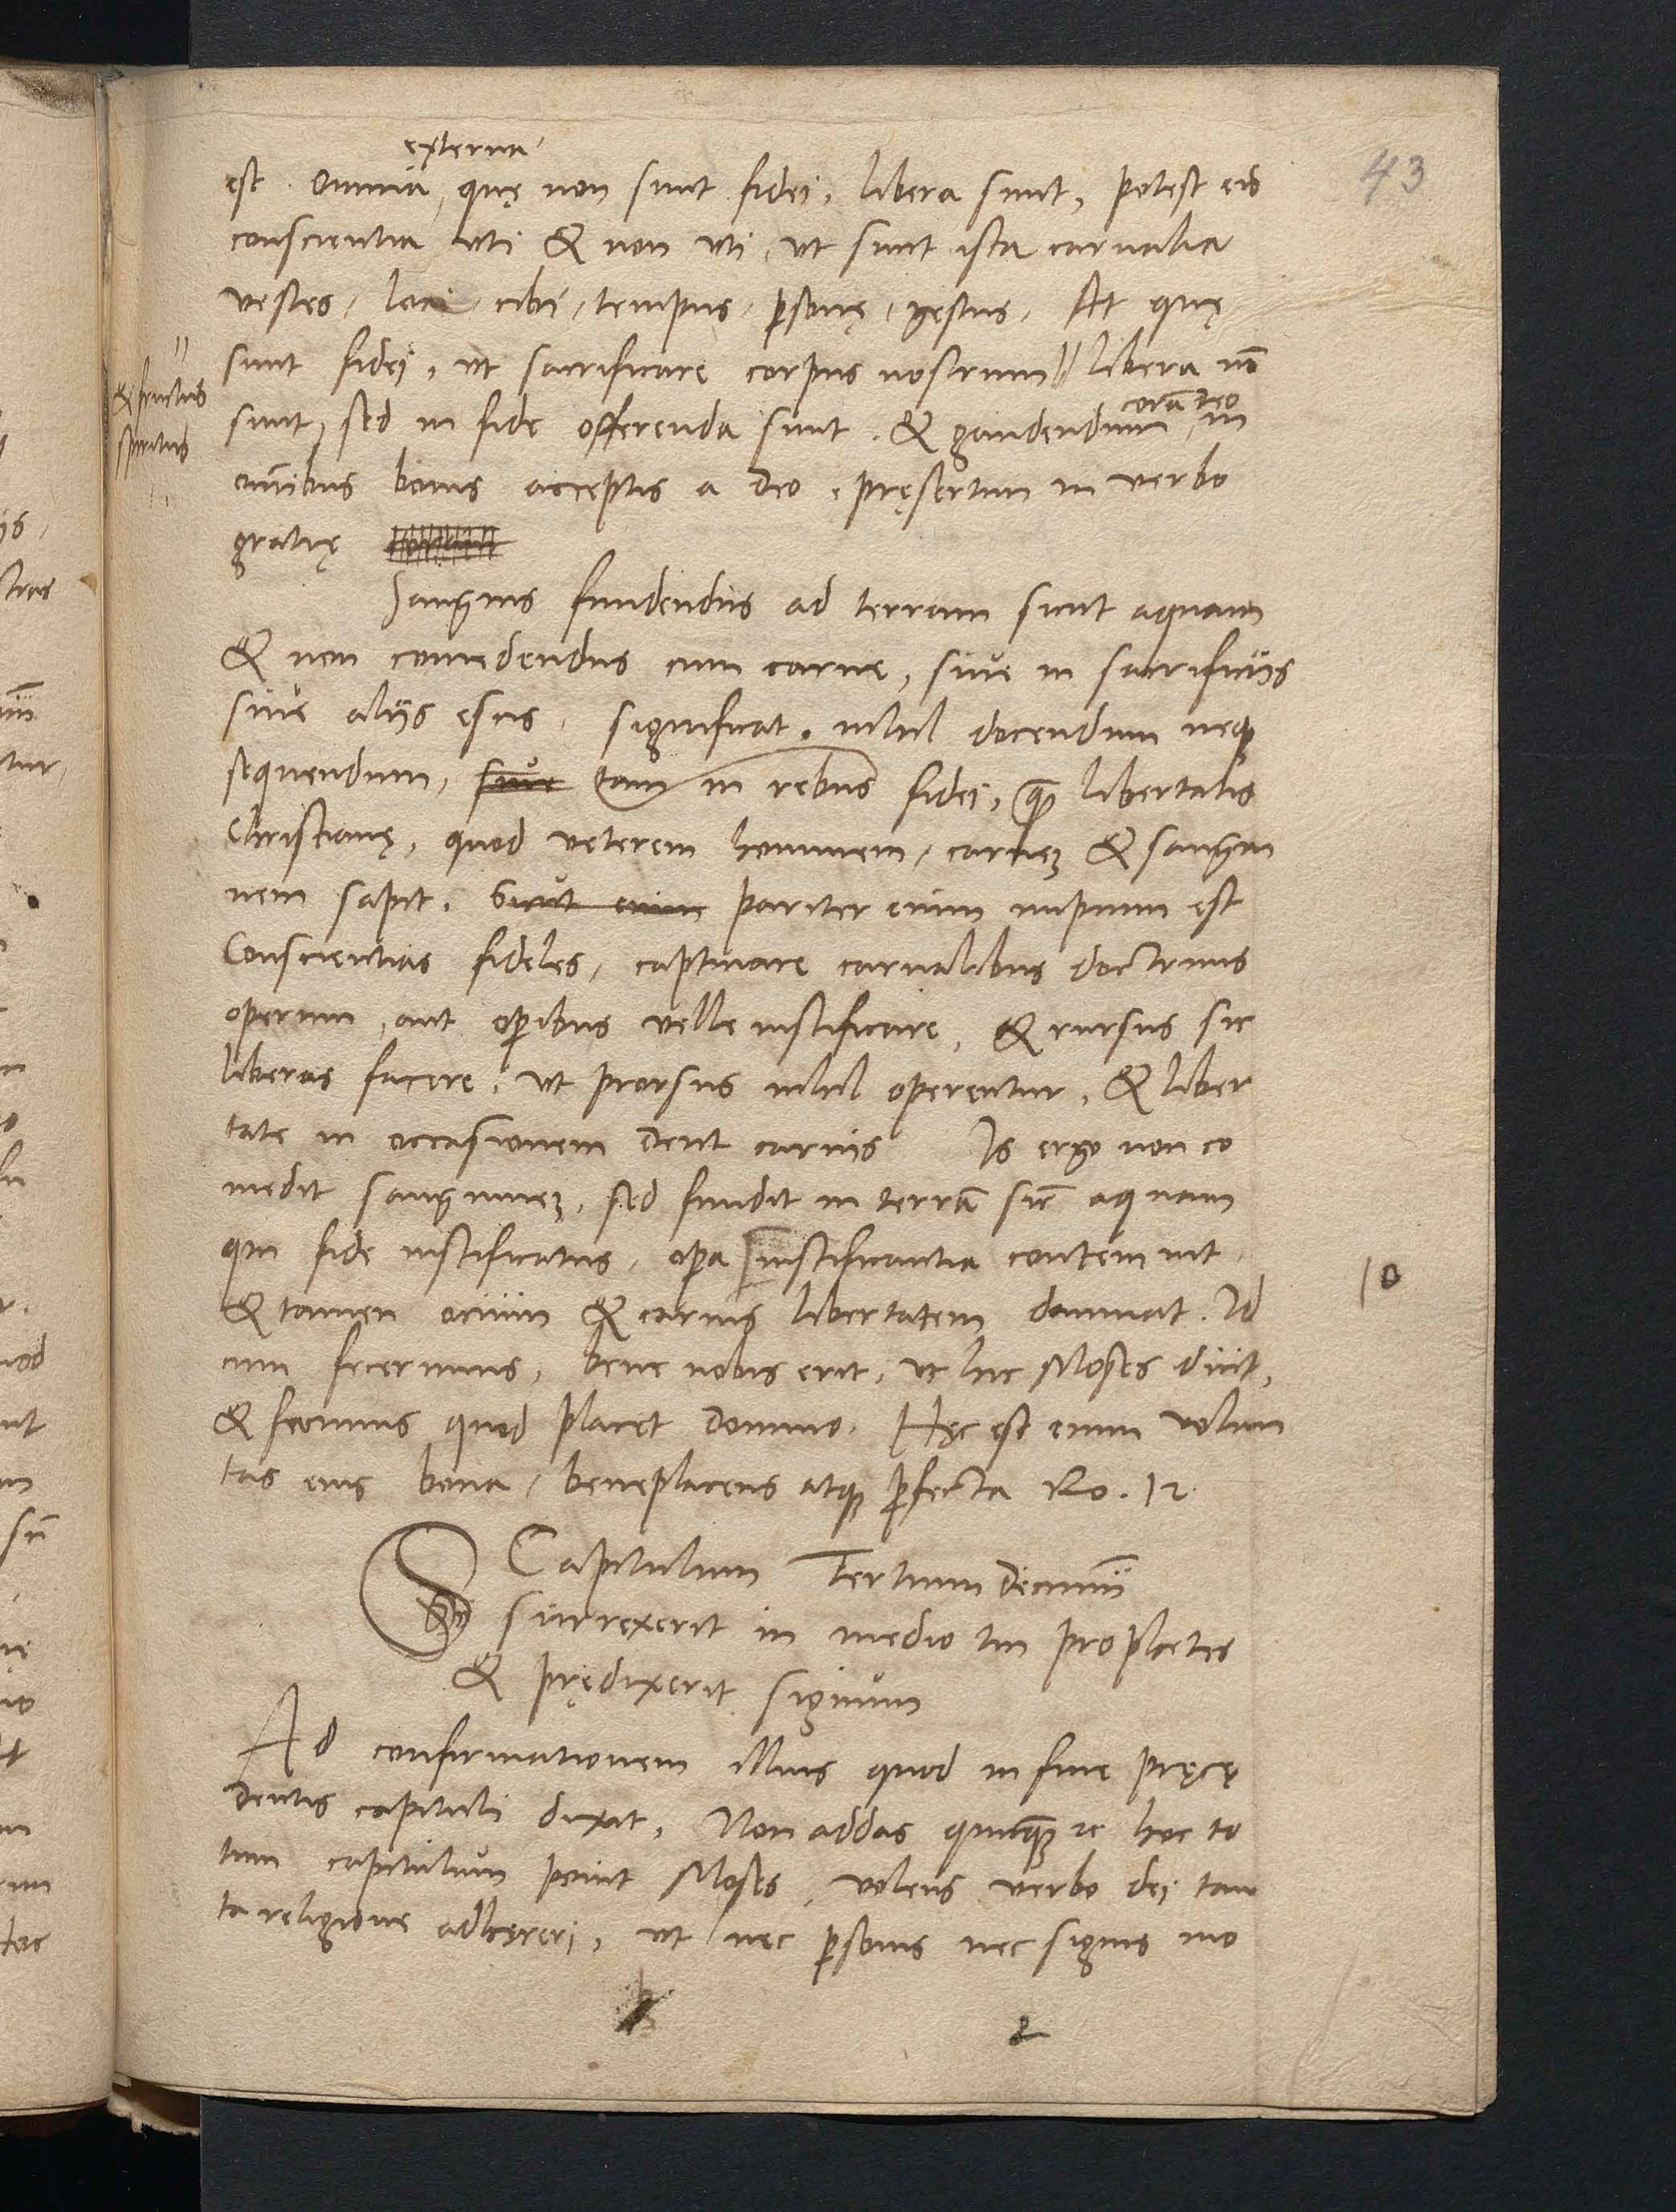 43
externa
est. Omnia, quę non sunt fidei, libera sunt, potest eis
conscientia uti & non uti, ut sunt ista carnalia
vestes, loci, cibi, tempus, psonę, gestus. At quę
sunt fidei, ut sacrificare corpus nostrum || libera nō
|| & fructus
spiritus
corā deo
sunt, sed in fide offerenda sunt. & gaudendum, in
omībus bonis acceptis a deo, pręsertim in verbo
gratię
Sanguis fundendus ad terram sicut aquam
& non comedendus cum carne, siue in sacrificiis
siue aliis esus, significat, nihil docendum neq
sequendum, siue tam in rebus fidei, q̄ libertatis
Christianę, quod veterem hominem, carnez & sangui
nem sapit. Sicut enim pariter enim impium est
Conscientias fideles, captiuare carnalibus doctrinis
operum, aut opibus velle iustificare, & rursus sic
liberas facere, ut prorsus nihil operentur, & liber
tate in occasionem dent carnis Is ergo non co
medit sanguinez, sed fundit in terrā sic̄ aquam
qui fide iustificatus, opa iustificantia contemnit,
10
& tamen ocium & carnis libertatem damnat. Id
cum fecerimus, bene nobis erit, ut hic Moses dicit,
& facimus quod placet domino. Hęc est enim volun
tas eius bona, beneplacens atq pfecta Ro. 12
Capitulum Tertium decimū
Si surrexerit in medio tui prophetes
& prędixerit signum
Ad confirmationem illius quod in fine pręcę
dentis capituli dixit, Non addas quicq̄ 2c hoc to
tum capitulum ponit Moses, volens verbo dei tan
ta religione adhęreri, ut nec psonis nec signis mo
2